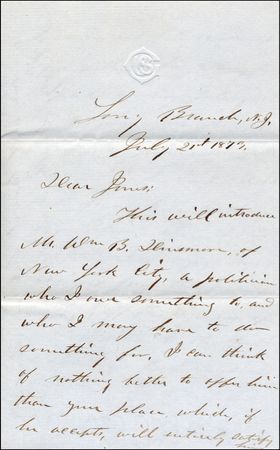 Long Branch, N.J.
July 21st 1873.
Dear Jones:
This will introduce
Mr. Wm B. Dinsmore, of
New York City, a politician
who I owe something to, and
who I may have to do
something for. I can think
of nothing better to offer him
than your place, which, if
he accepts, will entirely satisfy